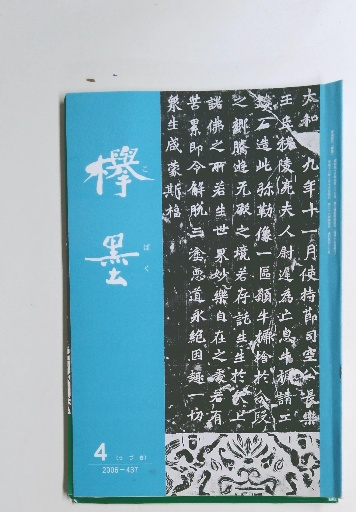 太和九年十一月使持節司空公長樂
王丘穆陵亮夫人尉遲為亡息牛橛請工
鏤石造此弥勒像一區願牛橛捨於分段
之鄉騰遊无礙之境若存託生生於天上
諸佛之所若生世界妙樂自在之處若有
苦累即令解脫三塗惡道永絕因趣一切
衆生咸蒙斯福
欅墨
ぼく
4
2006-437